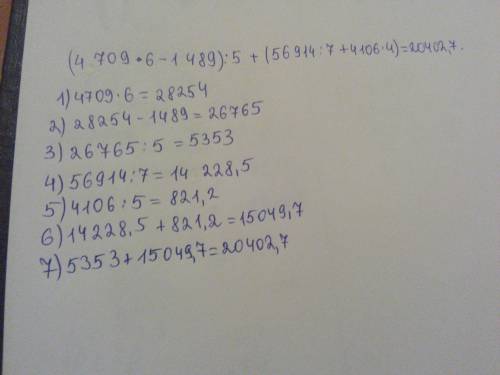 (4 709 · 6 - 1 489) : 5 + (56914 : 7 + 4106 · 4) = 20402,7.
1) 4709 · 6 = 28254
2) 28254 - 1489 = 26765
3) 26765 : 5 = 5353
4) 56914 : 7 = 14 228,5
5) 4106 : 5 = 821,2
6) 14228,5 + 821,2 = 15049,7
7) 5353 + 15049,7 = 20402,7